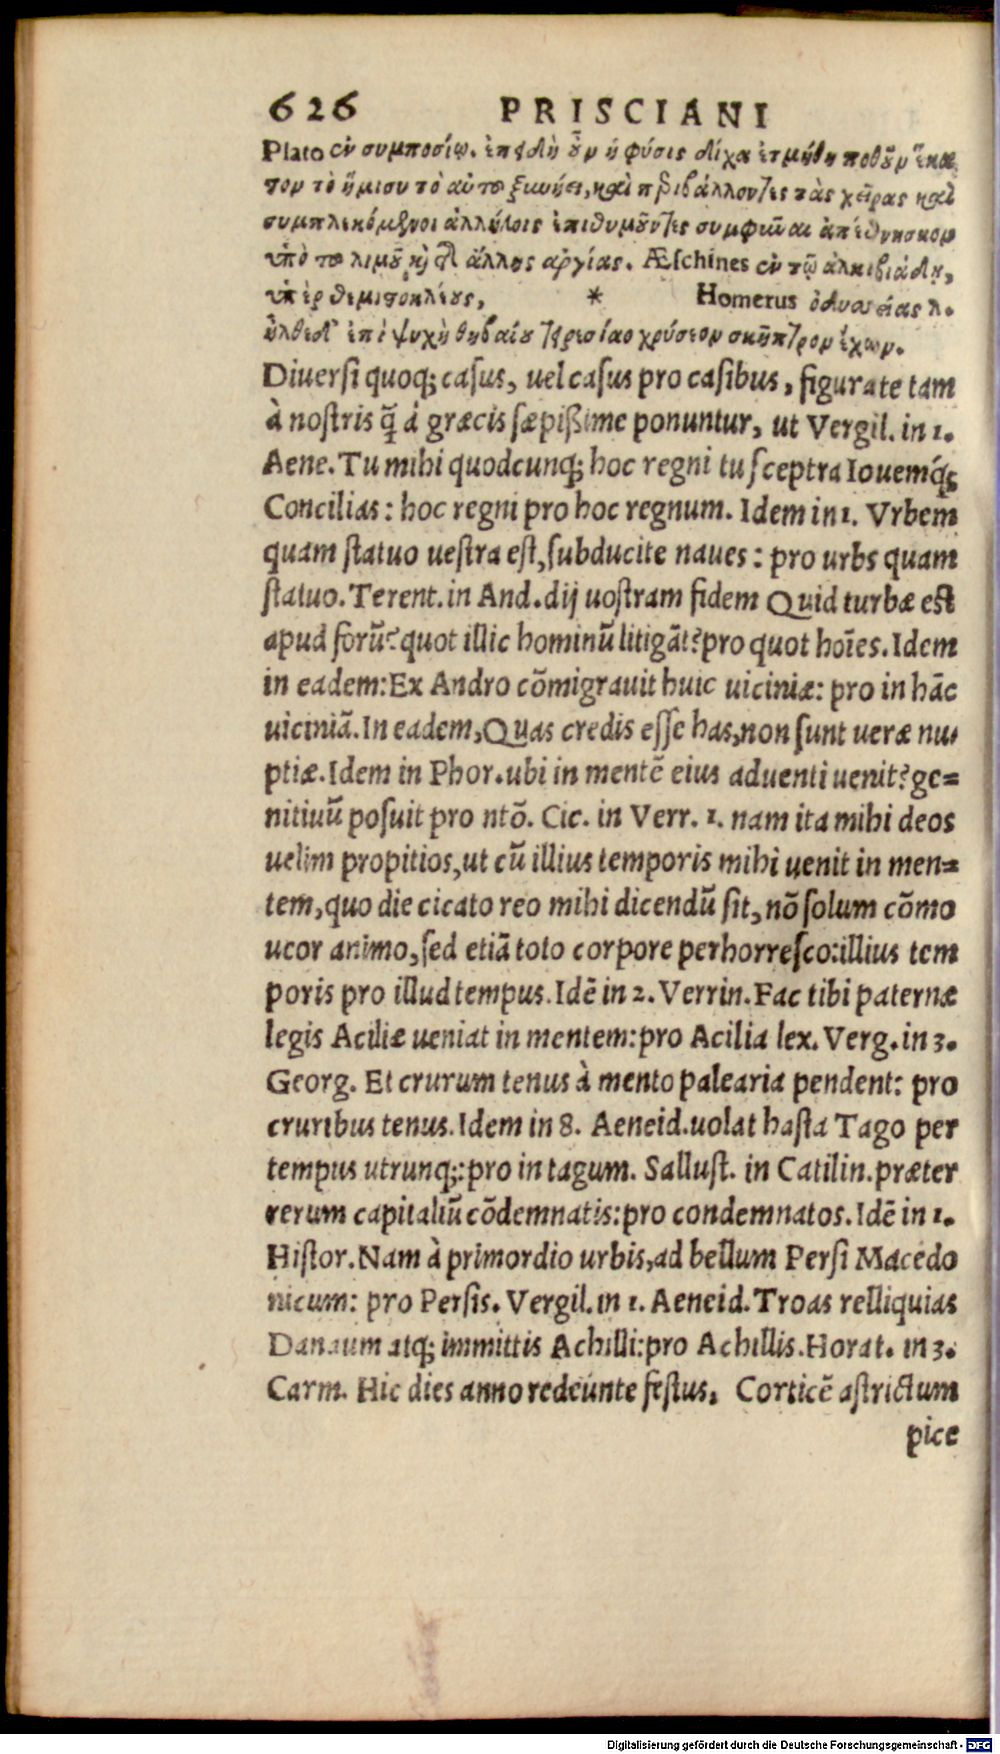 626 PRISCIANI
Plato ἐν συμποσίῳ. ἐπειδὴ οὖν ἡ φύσις δίχα ἐτμήθη ποθοῦν ἕκας
τον τὸ ἥμισυ τὸ αὐτοῦ ξυνῄει, καὶ περιβάλλοντες τὰς χεῖρας καὶ
συμπλεκόμενοι ἀλλήλοις ἐπιθυμοῦντες συμφῦναι ἀπέθνησκον
ὑπὸ τοῦ λιμοῦ καὶ τῆς ἄλλης ἀργίας. Æschines ἐν τῷ ἀλκιβιάδῃ,
ὑπὲρ θεμιστοκλέους, * Homerus ὀδυσσείας λ.
ἦλθε δ' ἐπὶ ψυχὴ θηβαίου τειρεσίαο χρύσεον σκῆπτρον ἔχων.
Diuersi quoq; casus, uel casus pro casibus, figurate tam
à nostris q̃ á græcis sæpißime ponuntur, ut Vergil. in 1.
Aene. Tu mihi quodcunq; hoc regni tu sceptra Iouemq́;
Concilias: hoc regni pro hoc regnum. Idem in 1. Vrbem
quam statuo uestra est, subducite naues: pro urbs quam
statuo. Terent. in And. dij uostram fidem Quid turbæ est
apud forũ? quot illic hominũ litigãt? pro quot hoı̃es. Idem
in eadem: Ex Andro cõmigrauit huic uiciniæ: pro in hãc
uiciniã. In eadem, Quas credis esse has, non sunt ueræ nu-
ptiæ. Idem in Phor. ubi in mentẽ eius aduenti uenit? ge=
nitiuũ posuit pro ntõ. Cic. in Verr. 1. nam ita mihi deos
uelim propitios, ut cũ illius temporis mihi uenit in men=
tem, quo die cicato reo mihi dicendũ sit, nõ solum cõmo
ueor animo, sed etiã toto corpore perhorresco: illius tem
poris pro illud tempus. Idẽ in 2. Verrin. Fac tibi paternæ
legis Aciliæ ueniat in mentem: pro Acilia lex. Verg. in 3.
Georg. Et crurum tenus à mento palearia pendent: pro
cruribus tenus. Idem in 8. Aeneid. uolat hasta Tago per
tempus utrunq;: pro in tagum. Sallust. in Catilin. præter
rerum capitaliũ cõdemnatis: pro condemnatos. Idẽ in 1.
Histor. Nam à primordio urbis, ad bellum Persi Macedo
nicum: pro Persis. Vergil. in 1. Aeneid. Troas relliquias
Danaum atq; immittis Achilli: pro Achillis. Horat. in 3.
Carm. Hic dies anno redeunte festus, Corticẽ astrictum
pice
Digitalisierung gefördert durch die Deutsche Forschungsgemeinschaft - DFG